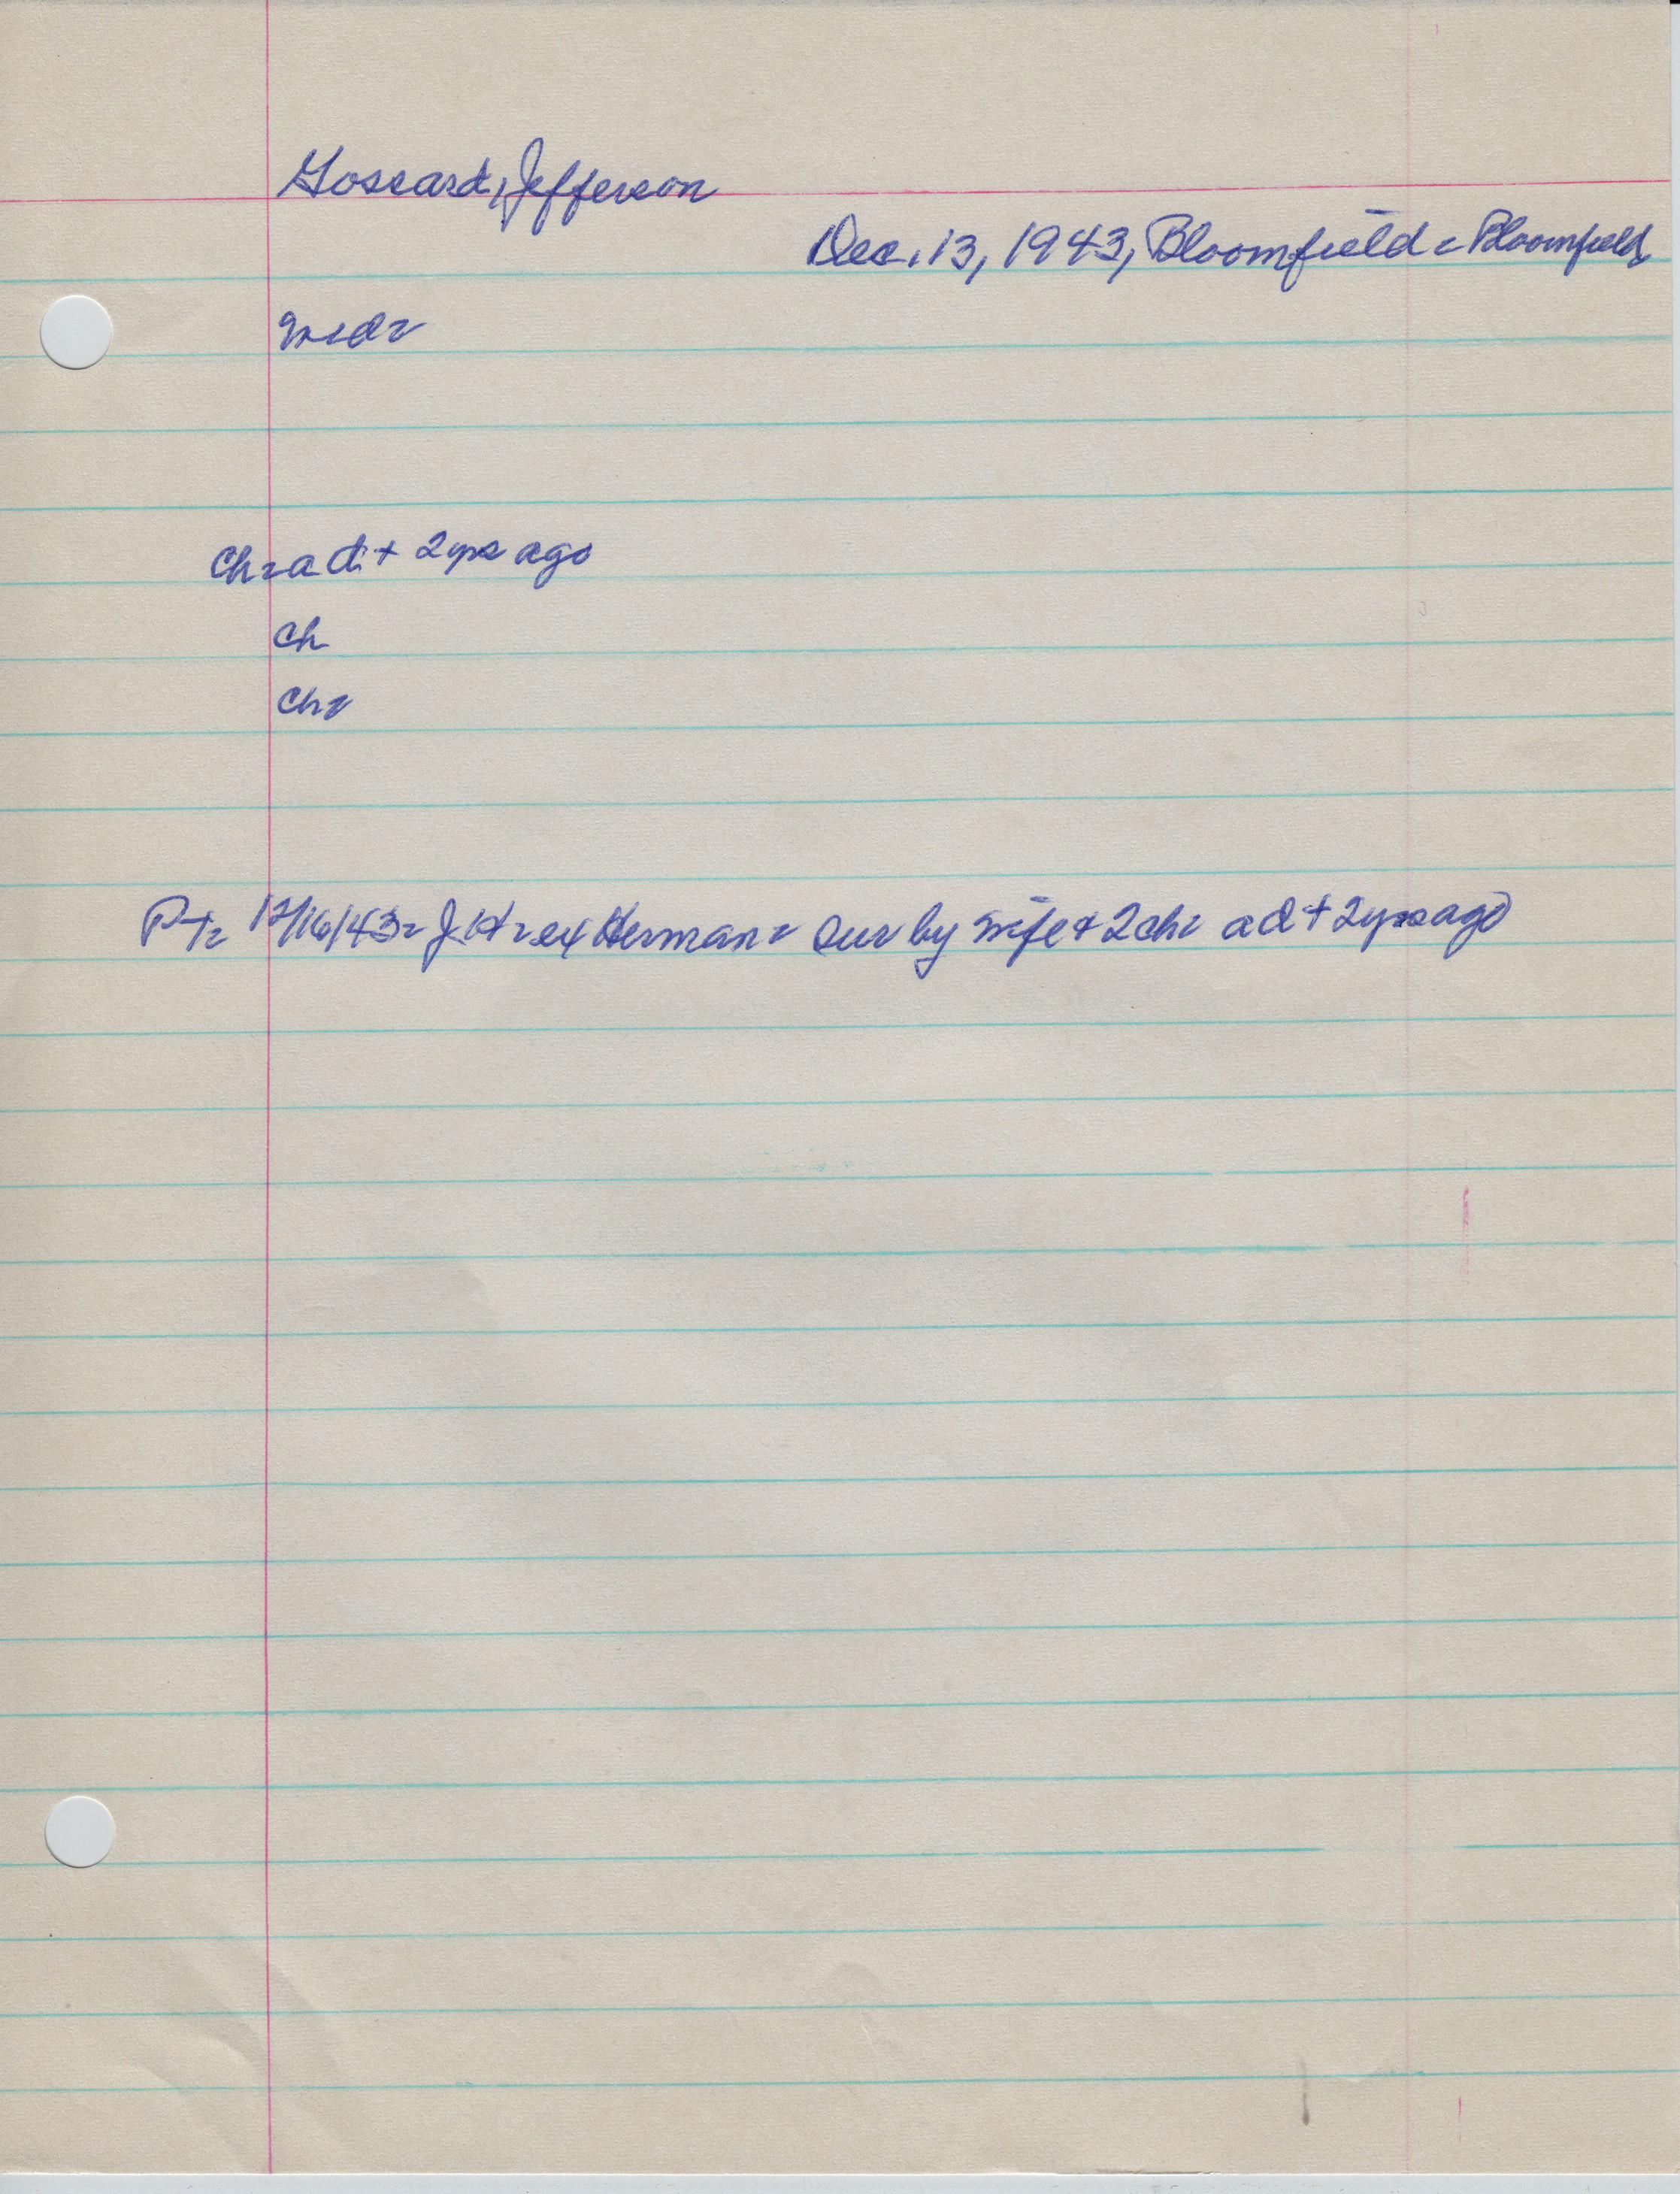 Gossard, Jefferson
Dec. 13, 1943, Bloomfield - Bloomfield
md-
Ch-ad + 2yrs ago
Ch
Ch-
P+- 12/16/43- J H-ex Herman- Sur by wife + 2ch- ad + 2yrs ago